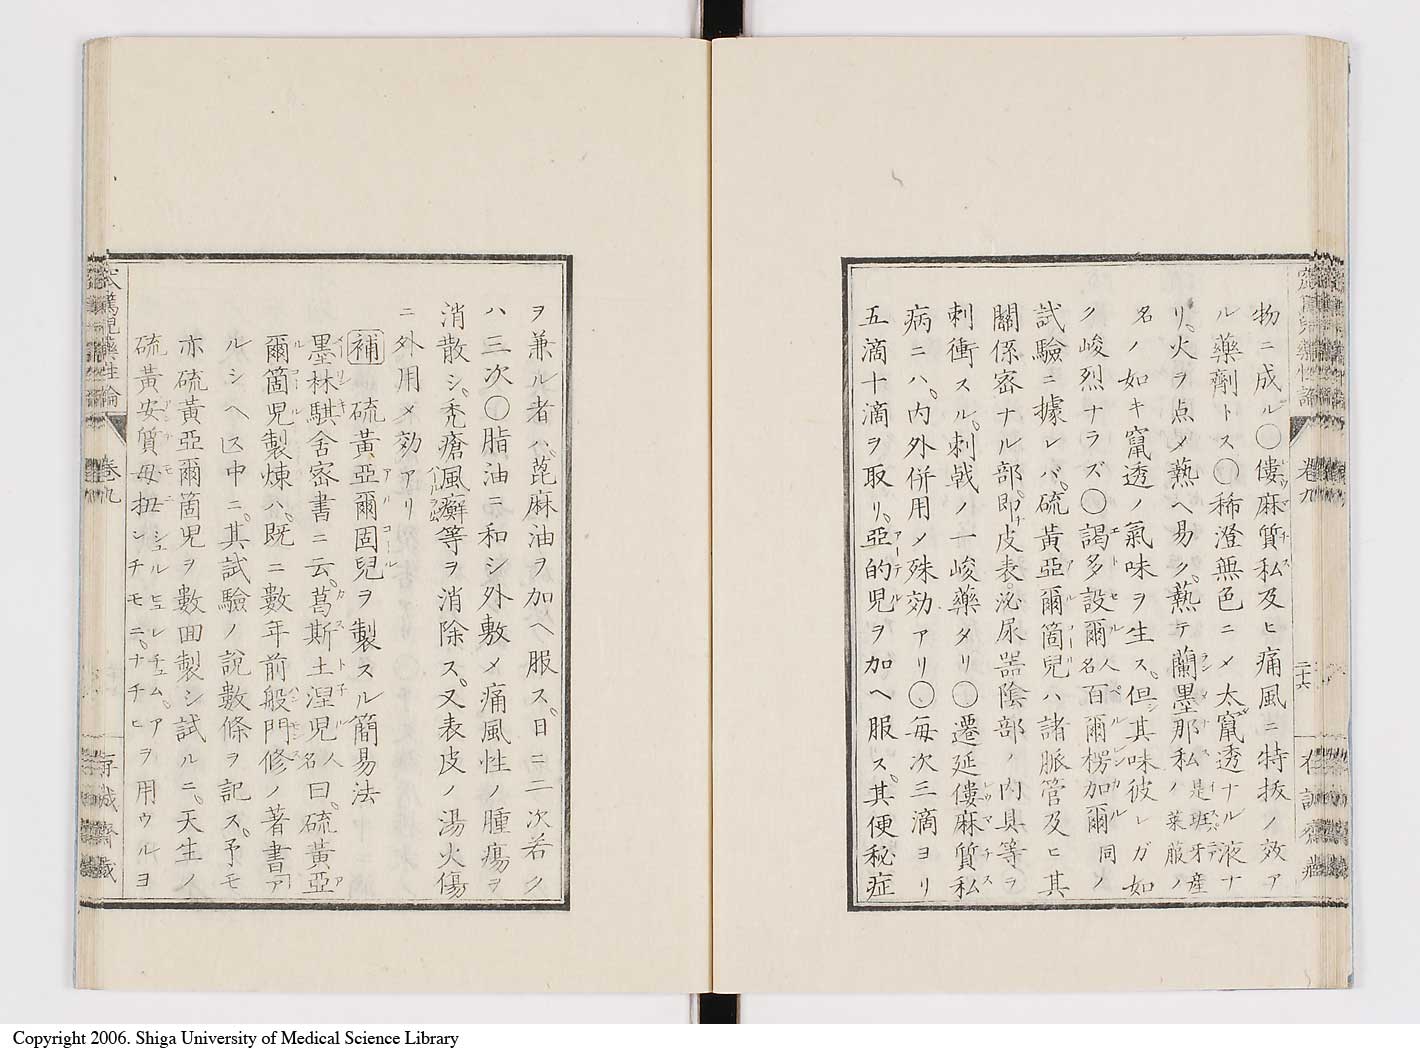 物ニ成ル○僂麻質私及ヒ痛風ニ特抜ノ效ア
ル藥劑トス○稀澄無色ニメ太竄透ナル液ナ
リ火ヲ点メ熱ヘ易ク熱テ蘭墨那私是班牙産ノ菜菔ノ
名ノ如キ竄透ノ氣味ヲ生ス但其味彼レガ如
ク峻烈ナラズ○謁多設爾人名百爾楞加爾同ノ
試驗ニ據レバ硫黃亞爾箇兒ハ諸脈管及ヒ其
關係密ナル部即皮表泌尿器陰部ノ内具等ヲ
刺衝スル刺戟ノ一峻藥タリ○遷延僂麻質私
病ニハ内外併用メ殊効アリ○每次三滴ヨリ
五滴十滴ヲ取リ亞的兒ヲ加ヘ服ス其便秘症
ヲ兼ル者ハ蓖麻油ヲ加ヘ服ス日ニ二次若ク
ハ三次○脂油ニ和シ外敷メ痛風性ノ腫瘍ヲ
消散シ禿瘡風癬等ヲ消除ス又表皮ノ湯火傷
ニ外用メ効アリ
補 硫黃亞爾固兒ヲ製スル簡易法
墨林騏舍密書ニ云葛斯土涅児人名曰硫黃亞
爾箇児製煉ハ既ニ數年前般門修ノ著書ア
ルシヘ匹中ニ其試驗ノ說數條ヲ記ス予モ
亦硫黃亞爾箇児ヲ數囬製シ試ルニ天生ノ
硫黃安質母扭シュルヒュレチュムアンチモニナチヒヲ用ウルヨ
卷九
二十六